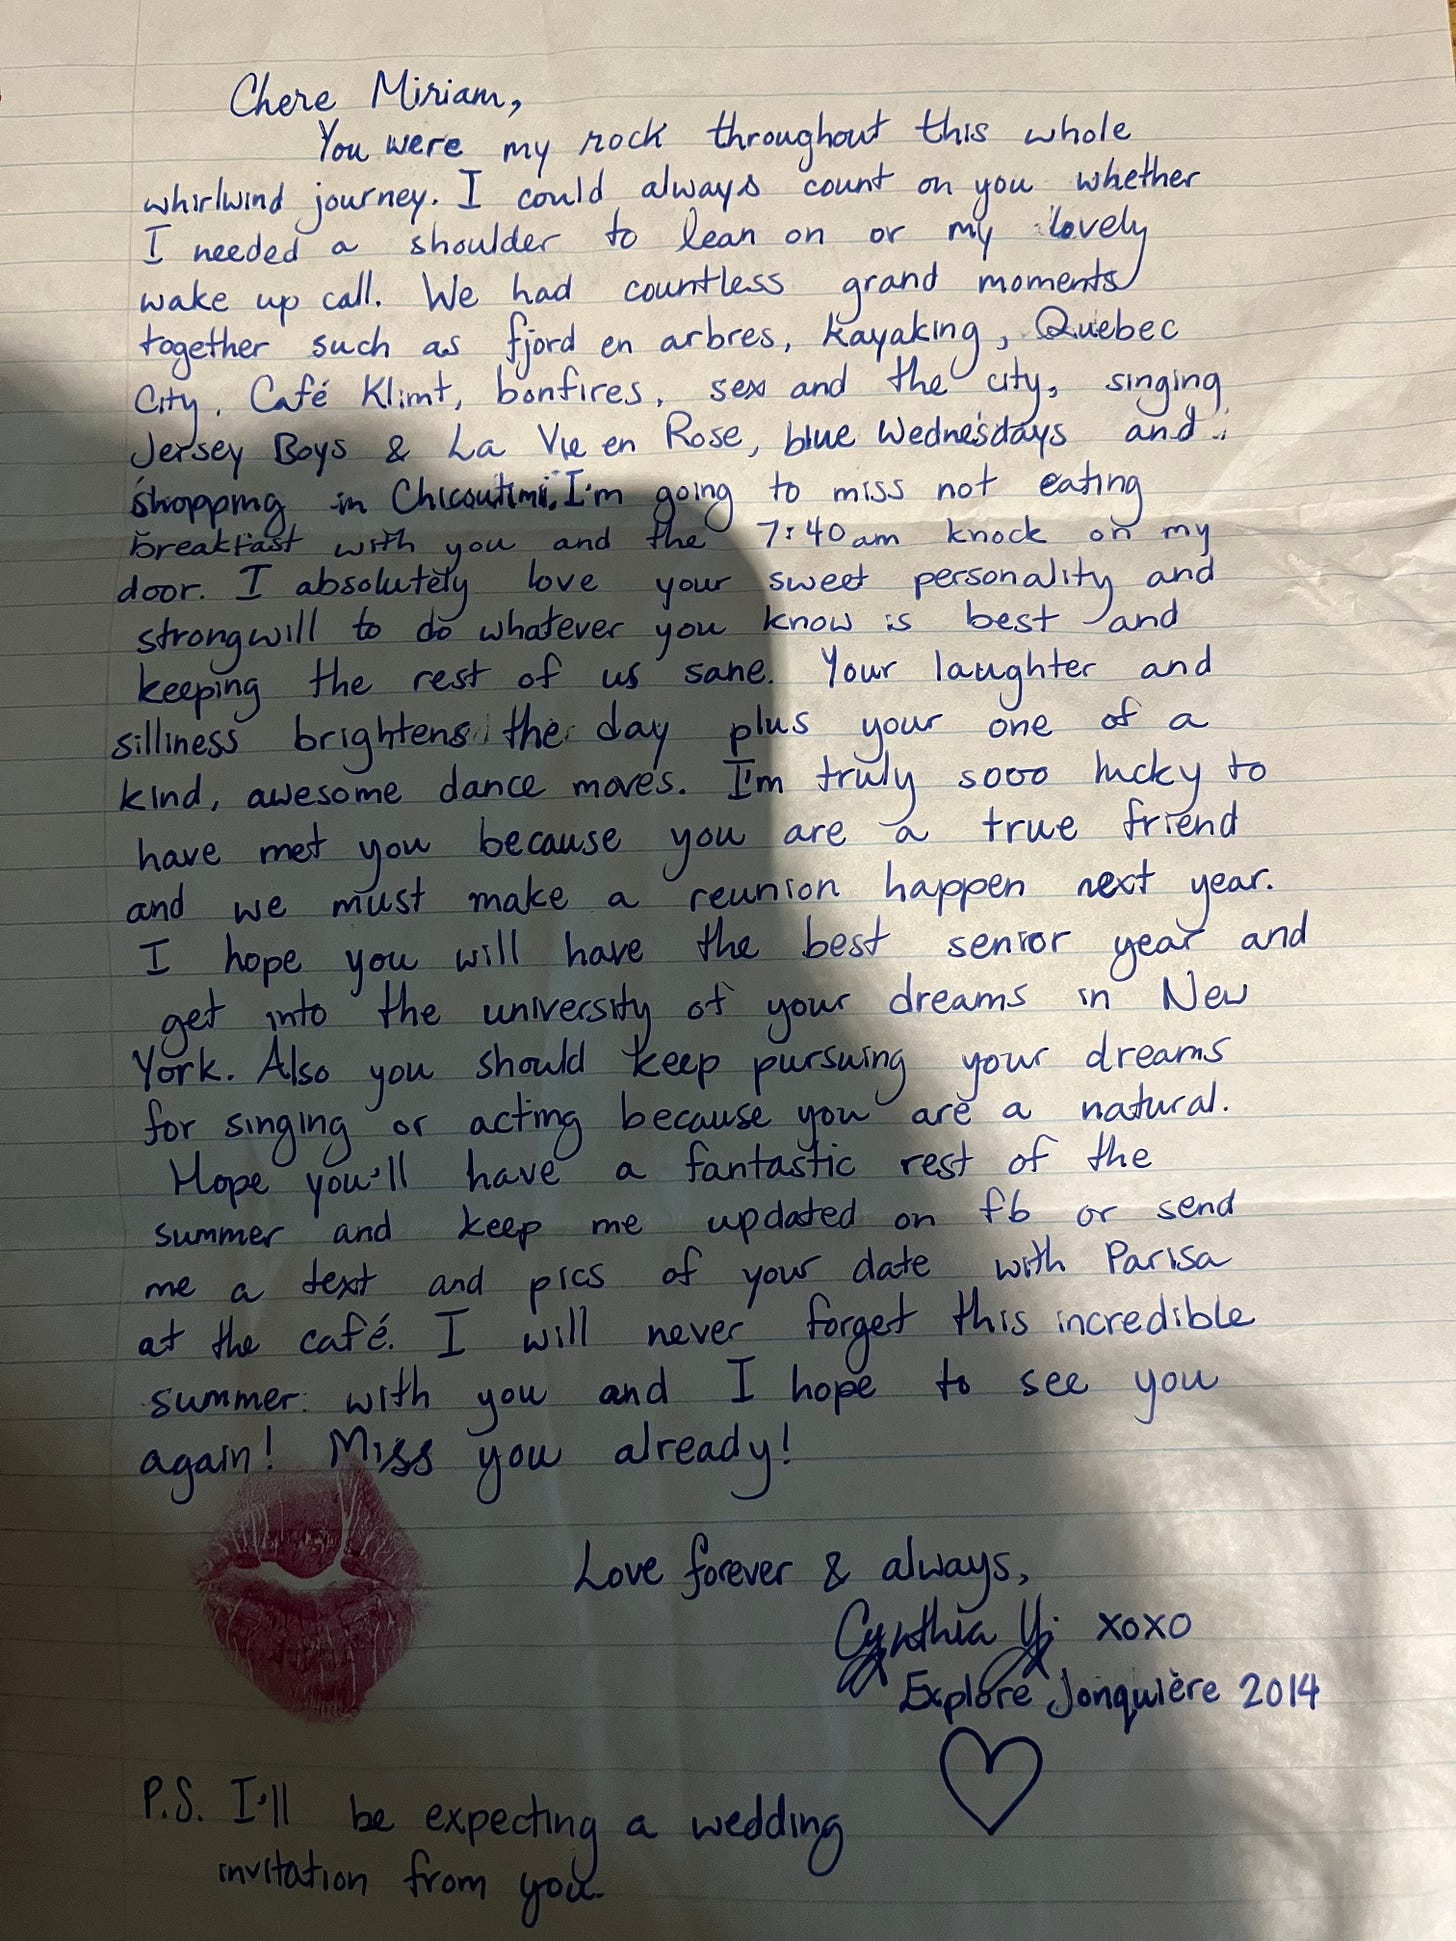 Chere Miriam,
You were my rock throughout this whole
whirlwind journey. I could always count on you whether
I needed a shoulder to lean on or my lovely
wake up call. We had countless grand moments
together such as fjord en arbres, kayaking, Quebec
City, Café Klimt, bonfires, sex and the city, singing
Jersey Boys & La Vie en Rose, blue Wednesdays and
shopping in Chicoutimi. I'm going to miss not eating
breakfast with you and the 7:40am knock on my
door. I absolutely love your sweet personality and
strongwill to do whatever you know is best and
keeping the rest of us sane. Your laughter and
silliness brightens the day plus your one of a
kind, awesome dance moves. I'm truly sooo lucky to
have met you because you are a true friend
and we must make a reunion happen next year.
I hope you will have the best senior year and
get into the university of your dreams in New
York. Also you should keep pursuing your dreams
for singing or acting because you are a natural.
Hope you'll have a fantastic rest of the
summer and keep me updated on fb or send
me a text and pics of your date with Parisa
at the café. I will never forget this incredible
summer with you and I hope to see you
again! Miss you already!
Love forever & always,
Cynthia Yi xoxo
Explore Jonquière 2014
P.S. I'll be expecting a wedding
invitation from you.